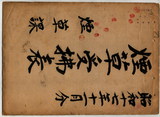 昭和十七年十一月分
煙草受拂表
煙草課